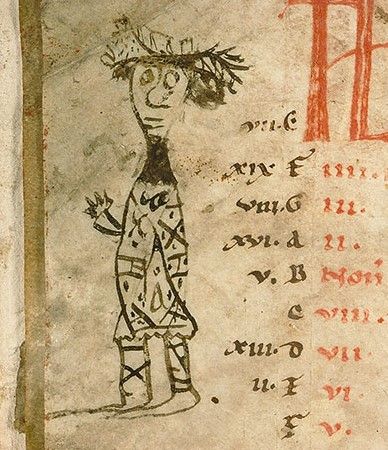 vii. E
xix F iiii.
viii. G iii.
xvi. A ii.
v. B Noñ
C viii.
xiii. D vii
ii. E vi
F v.